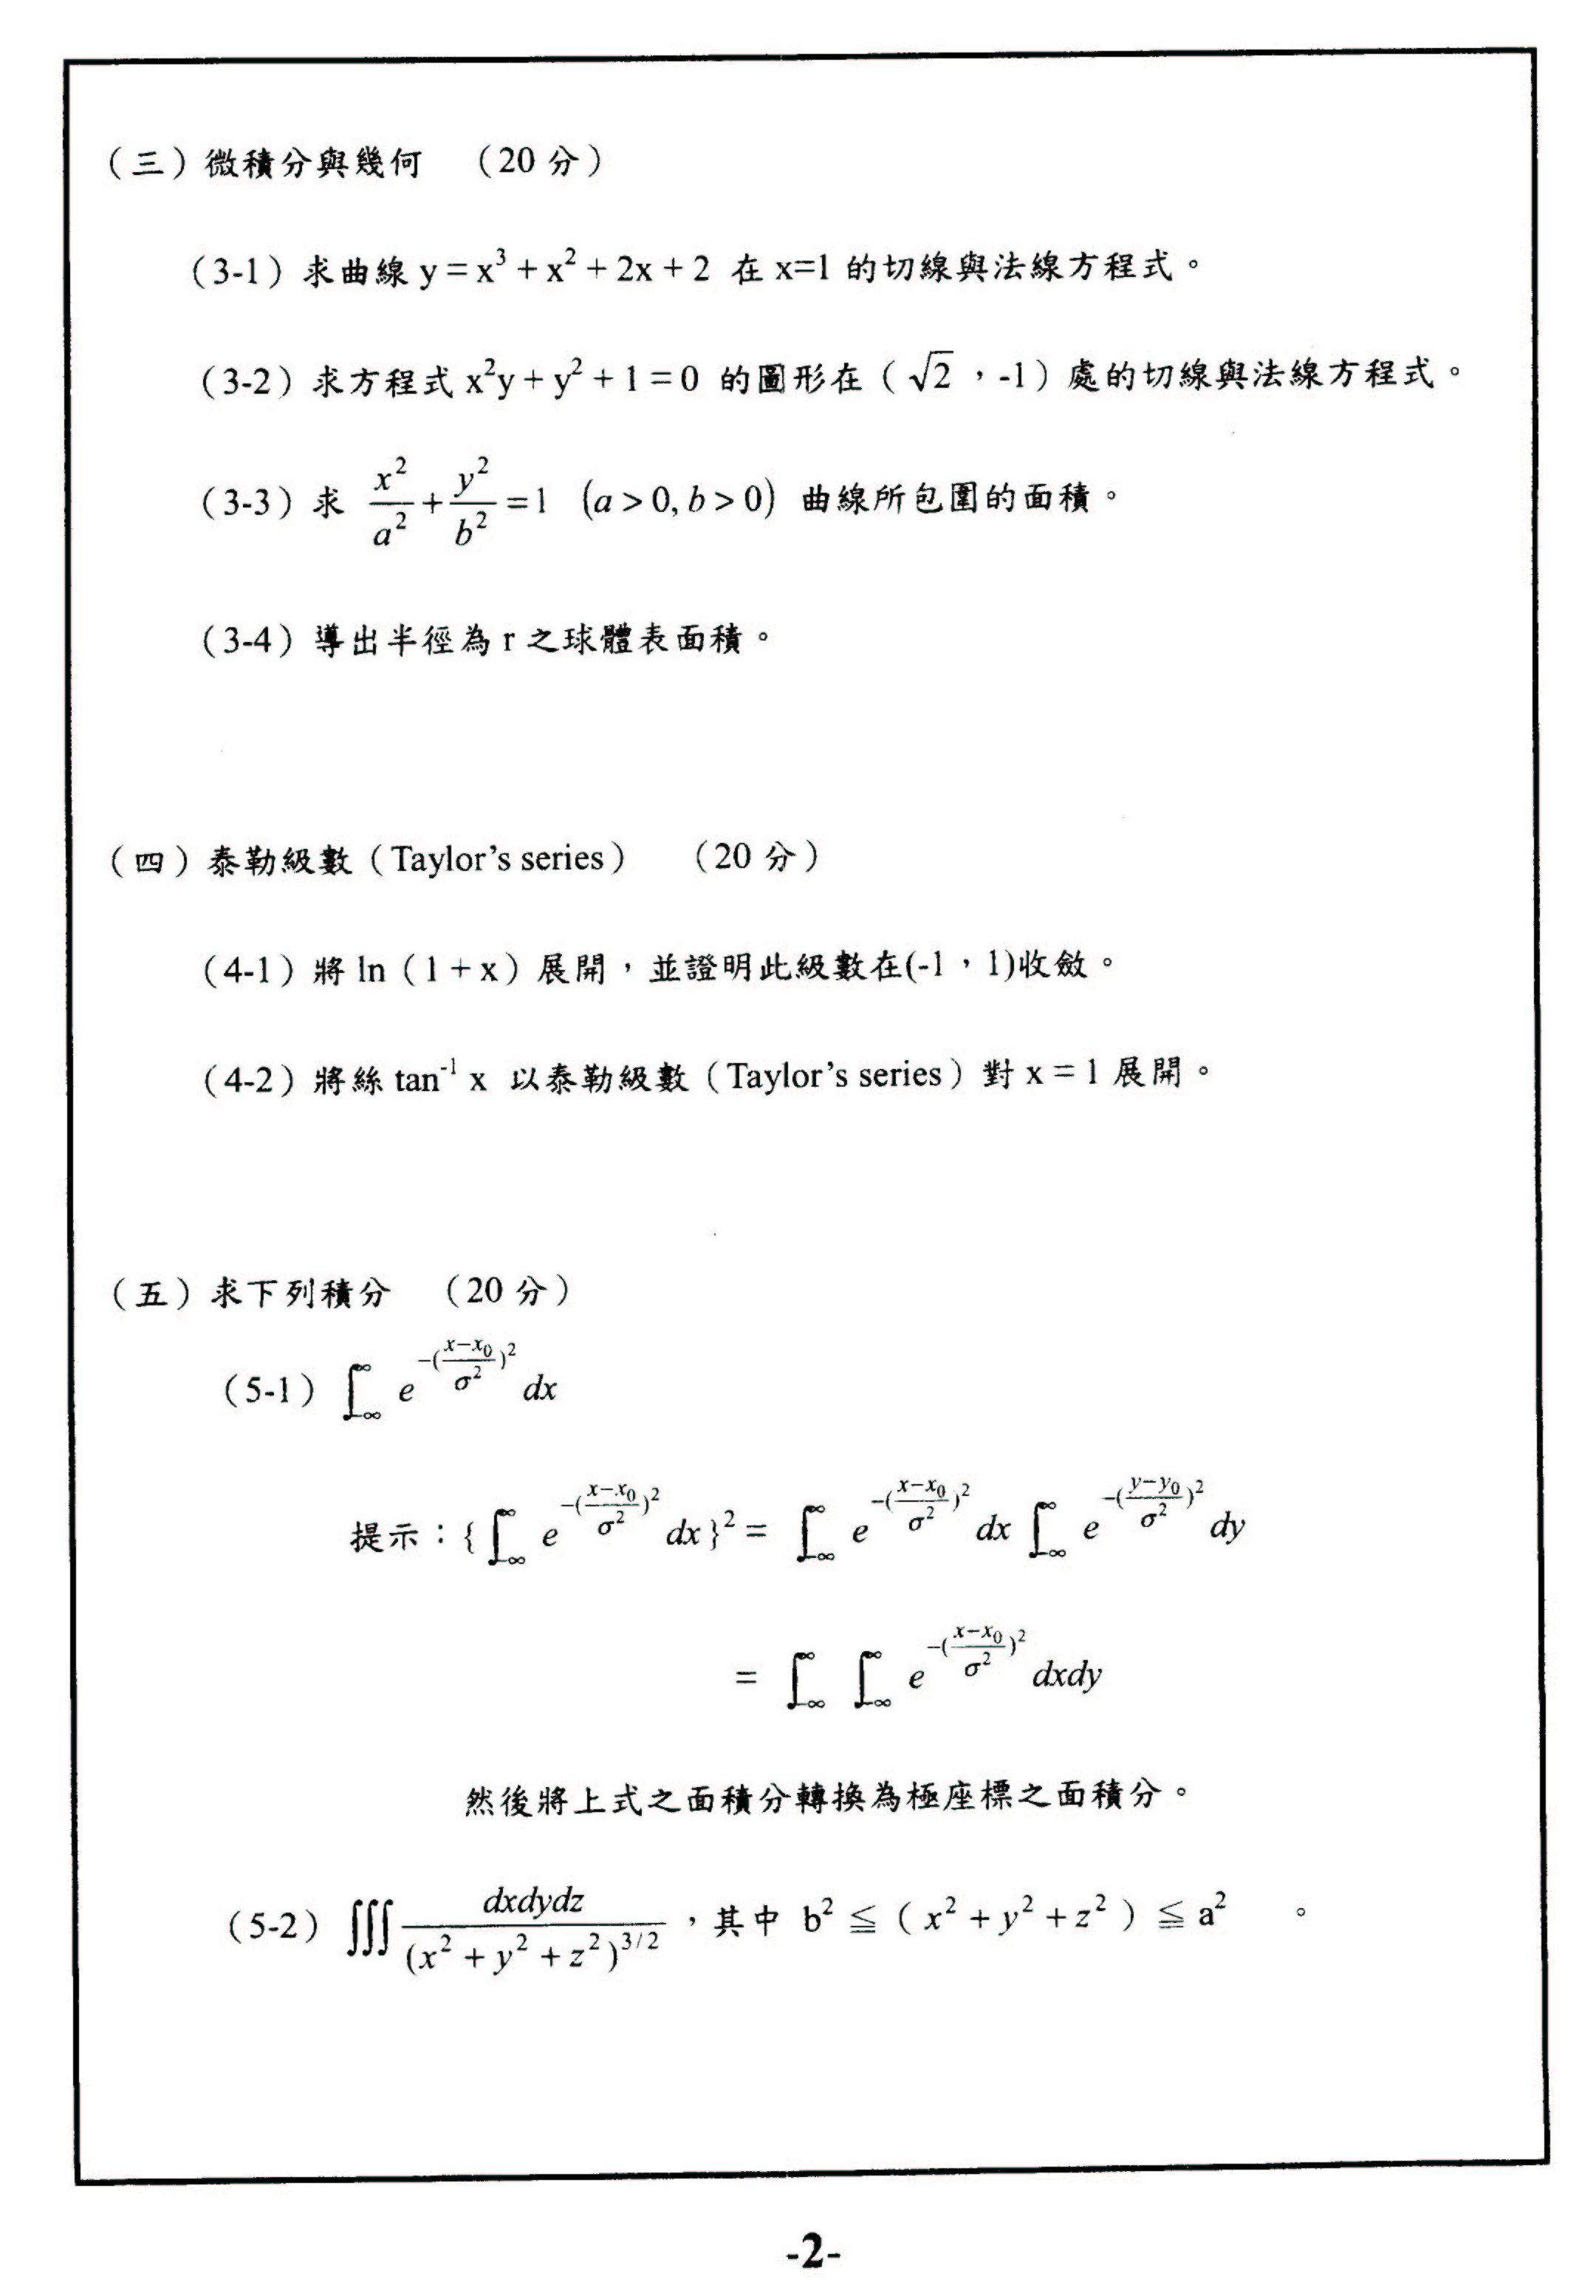 (三)微積分與幾何 (20 分)
(3-1)求曲線 y = x³ + x² + 2x + 2 在 x=1 的切線與法線方程式。
(3-2)求方程式 x²y + y² + 1 = 0 的圖形在(√2,-1)處的切線與法線方程式。
(3-3)求 x²/a² + y²/b² = 1 (a > 0, b > 0) 曲線所包圍的面積。
(3-4)導出半徑為 r 之球體表面積。
(四)泰勒級數(Taylor's series) (20 分)
(4-1)將 ln(1 + x)展開,並證明此級數在(-1,1)收斂。
(4-2)將絲 tan⁻¹ x 以泰勒級數(Taylor's series)對 x = 1 展開。
(五)求下列積分 (20 分)
(5-1) ∫_{-∞}^{∞} e^{-((x-x₀)/σ²)²} dx
提示:{ ∫_{-∞}^{∞} e^{-((x-x₀)/σ²)²} dx }² = ∫_{-∞}^{∞} e^{-((x-x₀)/σ²)²} dx ∫_{-∞}^{∞} e^{-((y-y₀)/σ²)²} dy
= ∫_{-∞}^{∞} ∫_{-∞}^{∞} e^{-((x-x₀)/σ²)²} dxdy
然後將上式之面積分轉換為極座標之面積分。
(5-2) ∭ dxdydz/(x² + y² + z²)^{3/2},其中 b² ≦ ( x² + y² + z² ) ≦ a² 。
-2-